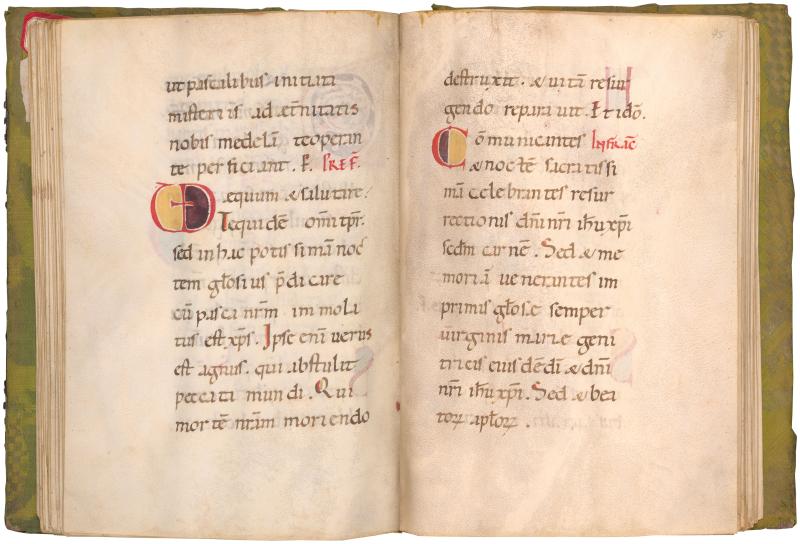 ut pascalibus initiati
misteriis ad et̄nitatis
nobis medelā te operan
te perficiant. P̄. PREF.
Vere equum & salutare.
Te quidē om̄i tp̄r.
sed in hac potissimā noc
tem gl̄osius p̄dicare
cū pasca nr̄m immola
tus est xp̄s. Ipse enī verus
est agnus. qui abstulit
peccata mundi. Qui
mortē nr̄am moriendo
95
destruxit. & uitā resur
gendo reparauit. Et idō.
Cōmunicantes INFRAC̄
& noctē sacratissi
mā celebrantes resur
rectionis dn̄i nr̄i ih̄u xp̄i
scdm̄ carnē. Sed & me
moriā uenerantes im
primis gl̄ose semper
uirginis marie geni
tricis eius dē dī & dn̄i
nr̄i ih̄u xp̄i. Sed & bea
toꝝ apl̄oꝝ.